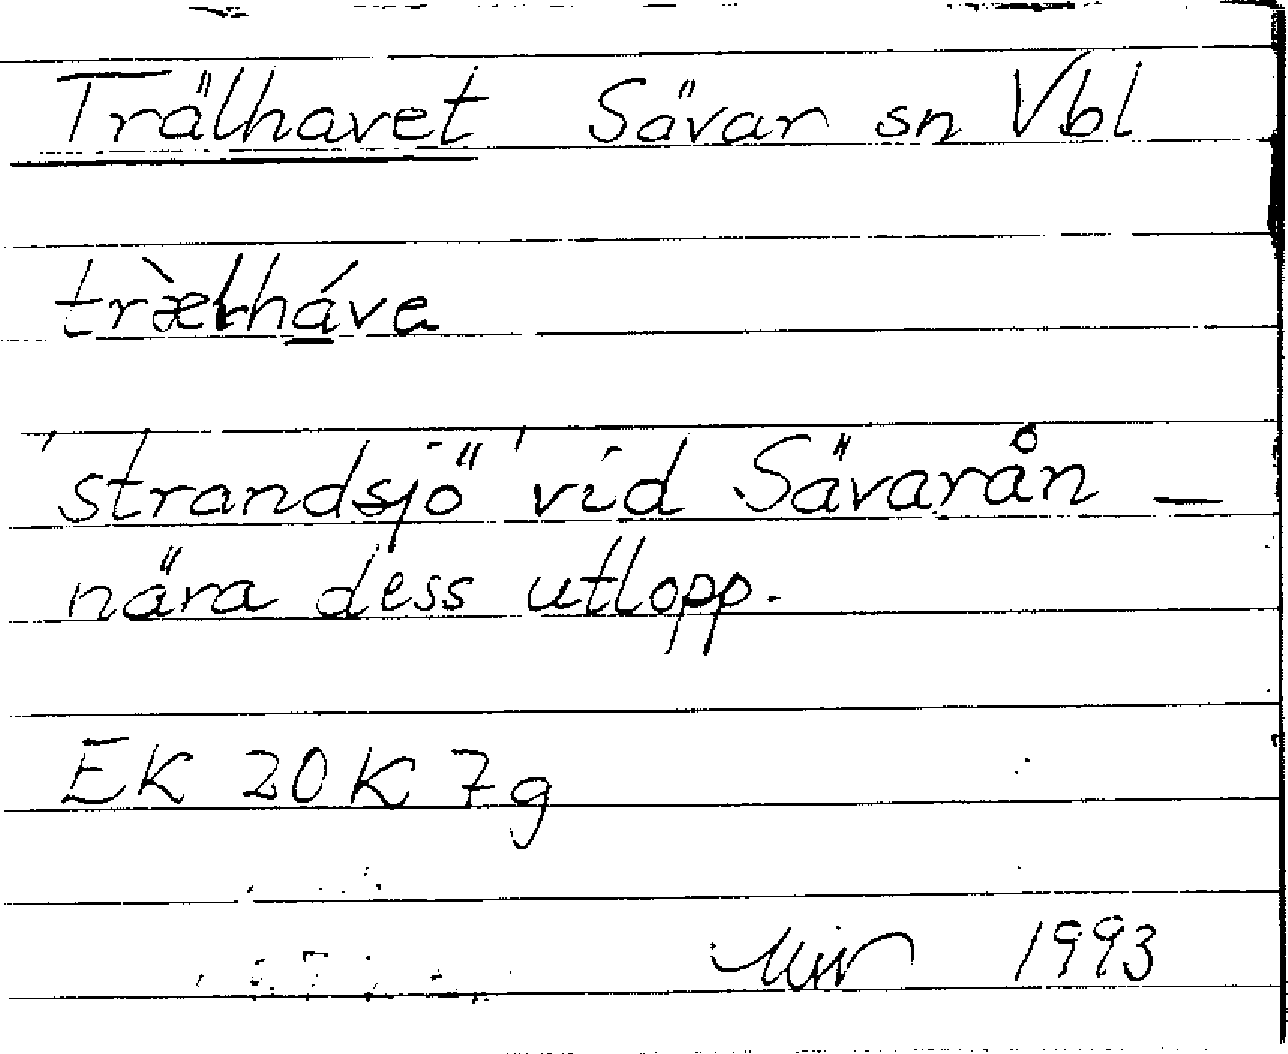 Trälhavet Sävar sn Vbl
'strandsjö' vid Sävarån –
nära dess utlopp.
EK 20K 7g
1993